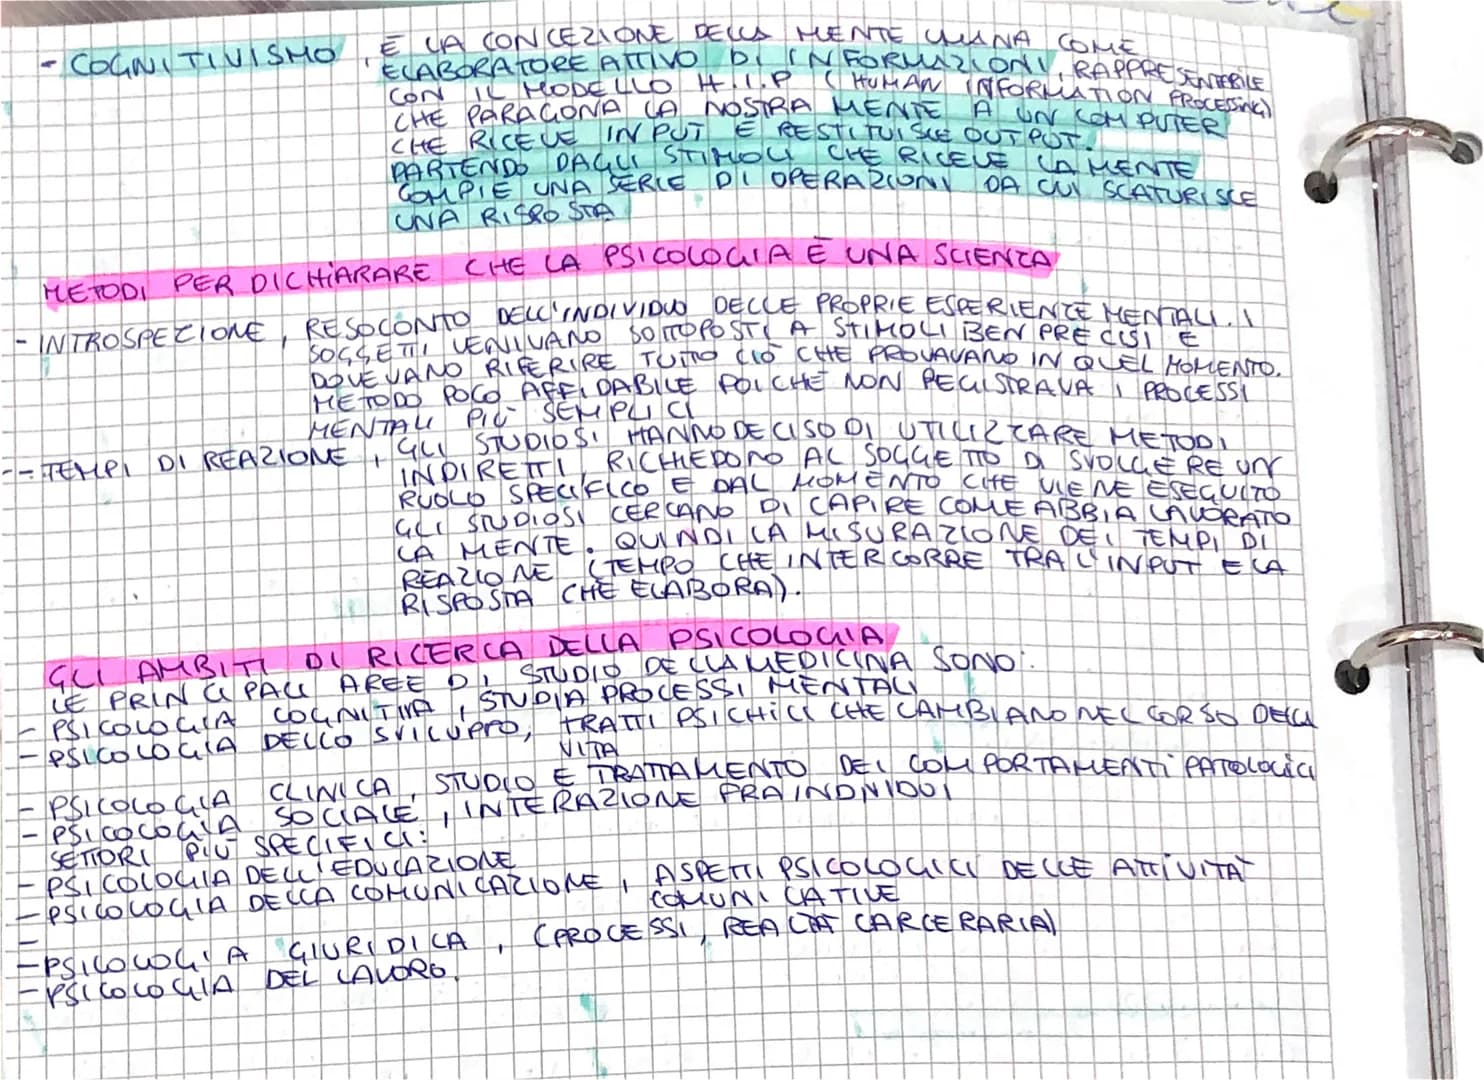 - COGNITIVISMO, È LA CONCEZIONE DELLA MENTE UMANA COME
ELABORATORE ATTIVO DI INFORMAZIONI, RAPPRESENTABILE
CON IL MODELLO H.I.P (HUMAN INFORMATION PROCESSING)
CHE PARAGONA LA NOSTRA MENTE A UN COMPUTER
CHE RICEVE INPUT E RESTITUISCE OUTPUT.
PARTENDO DAGLI STIMOLI CHE RICEVE LA MENTE
COMPIE UNA SERIE DI OPERAZIONI DA CUI SCATURISCE
UNA RISPOSTA
METODI PER DICHIARARE CHE LA PSICOLOGIA È UNA SCIENZA
- INTROSPEZIONE, RESOCONTO DELL'INDIVIDUO DELLE PROPRIE ESPERIENZE MENTALI. I
SOGGETTI VENIVANO SOTTOPOSTI A STIMOLI BEN PRECISI E
DOVEVANO RIFERIRE TUTTO CIÒ CHE PROVAVANO IN QUEL MOMENTO.
METODO POCO AFFIDABILE POICHÈ NON REGISTRAVA I PROCESSI
MENTALI PIÙ SEMPLICI
-- TEMPI DI REAZIONE, GLI STUDIOSI HANNO DECISO DI UTILIZZARE METODI
INDIRETTI, RICHIEDONO AL SOGGETTO DI SVOLGERE UN
RUOLO SPECIFICO E DAL MOMENTO CHE VIENE ESEGUITO
GLI STUDIOSI CERCANO DI CAPIRE COME ABBIA LAVORATO
LA MENTE. QUINDI LA MISURAZIONE DEI TEMPI DI
REAZIONE (TEMPO CHE INTERCORRE TRA L'INPUT E LA
RISPOSTA CHE ELABORA).
GLI AMBITI DI RICERCA DELLA PSICOLOGIA
LE PRINCIPALI AREE DI STUDIO DELLA MEDICINA SONO:
- PSICOLOGIA COGNITIVA, STUDIA PROCESSI MENTALI
- PSICOLOGIA DELLO SVILUPPO, TRATTI PSICHICI CHE CAMBIANO NEL CORSO DELLA
VITA
- PSICOLOGIA CLINICA, STUDIO E TRATTAMENTO DEI COMPORTAMENTI PATOLOGICI
- PSICOLOGIA SOCIALE, INTERAZIONE FRA INDIVIDUI
SETTORI PIÙ SPECIFICI:
- PSICOLOGIA DELL'EDUCAZIONE
- PSICOLOGIA DELLA COMUNICAZIONE, ASPETTI PSICOLOGICI DELLE ATTIVITÀ
COMUNICATIVE
-
- PSICOLOGIA GIURIDICA, (PROCESSI, REALTÀ CARCERARIA)
- PSICOLOGIA DEL LAVORO.